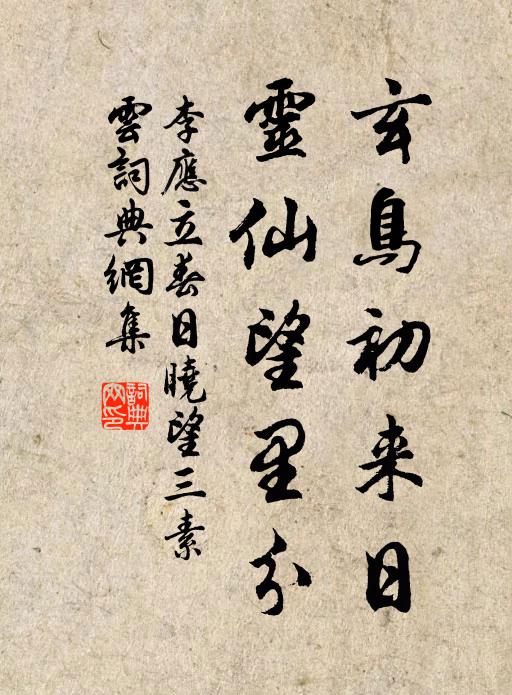 玄鳥初来日
靈仙望里分
李應立春日曉望三素
雲詞典網集
詞典網印